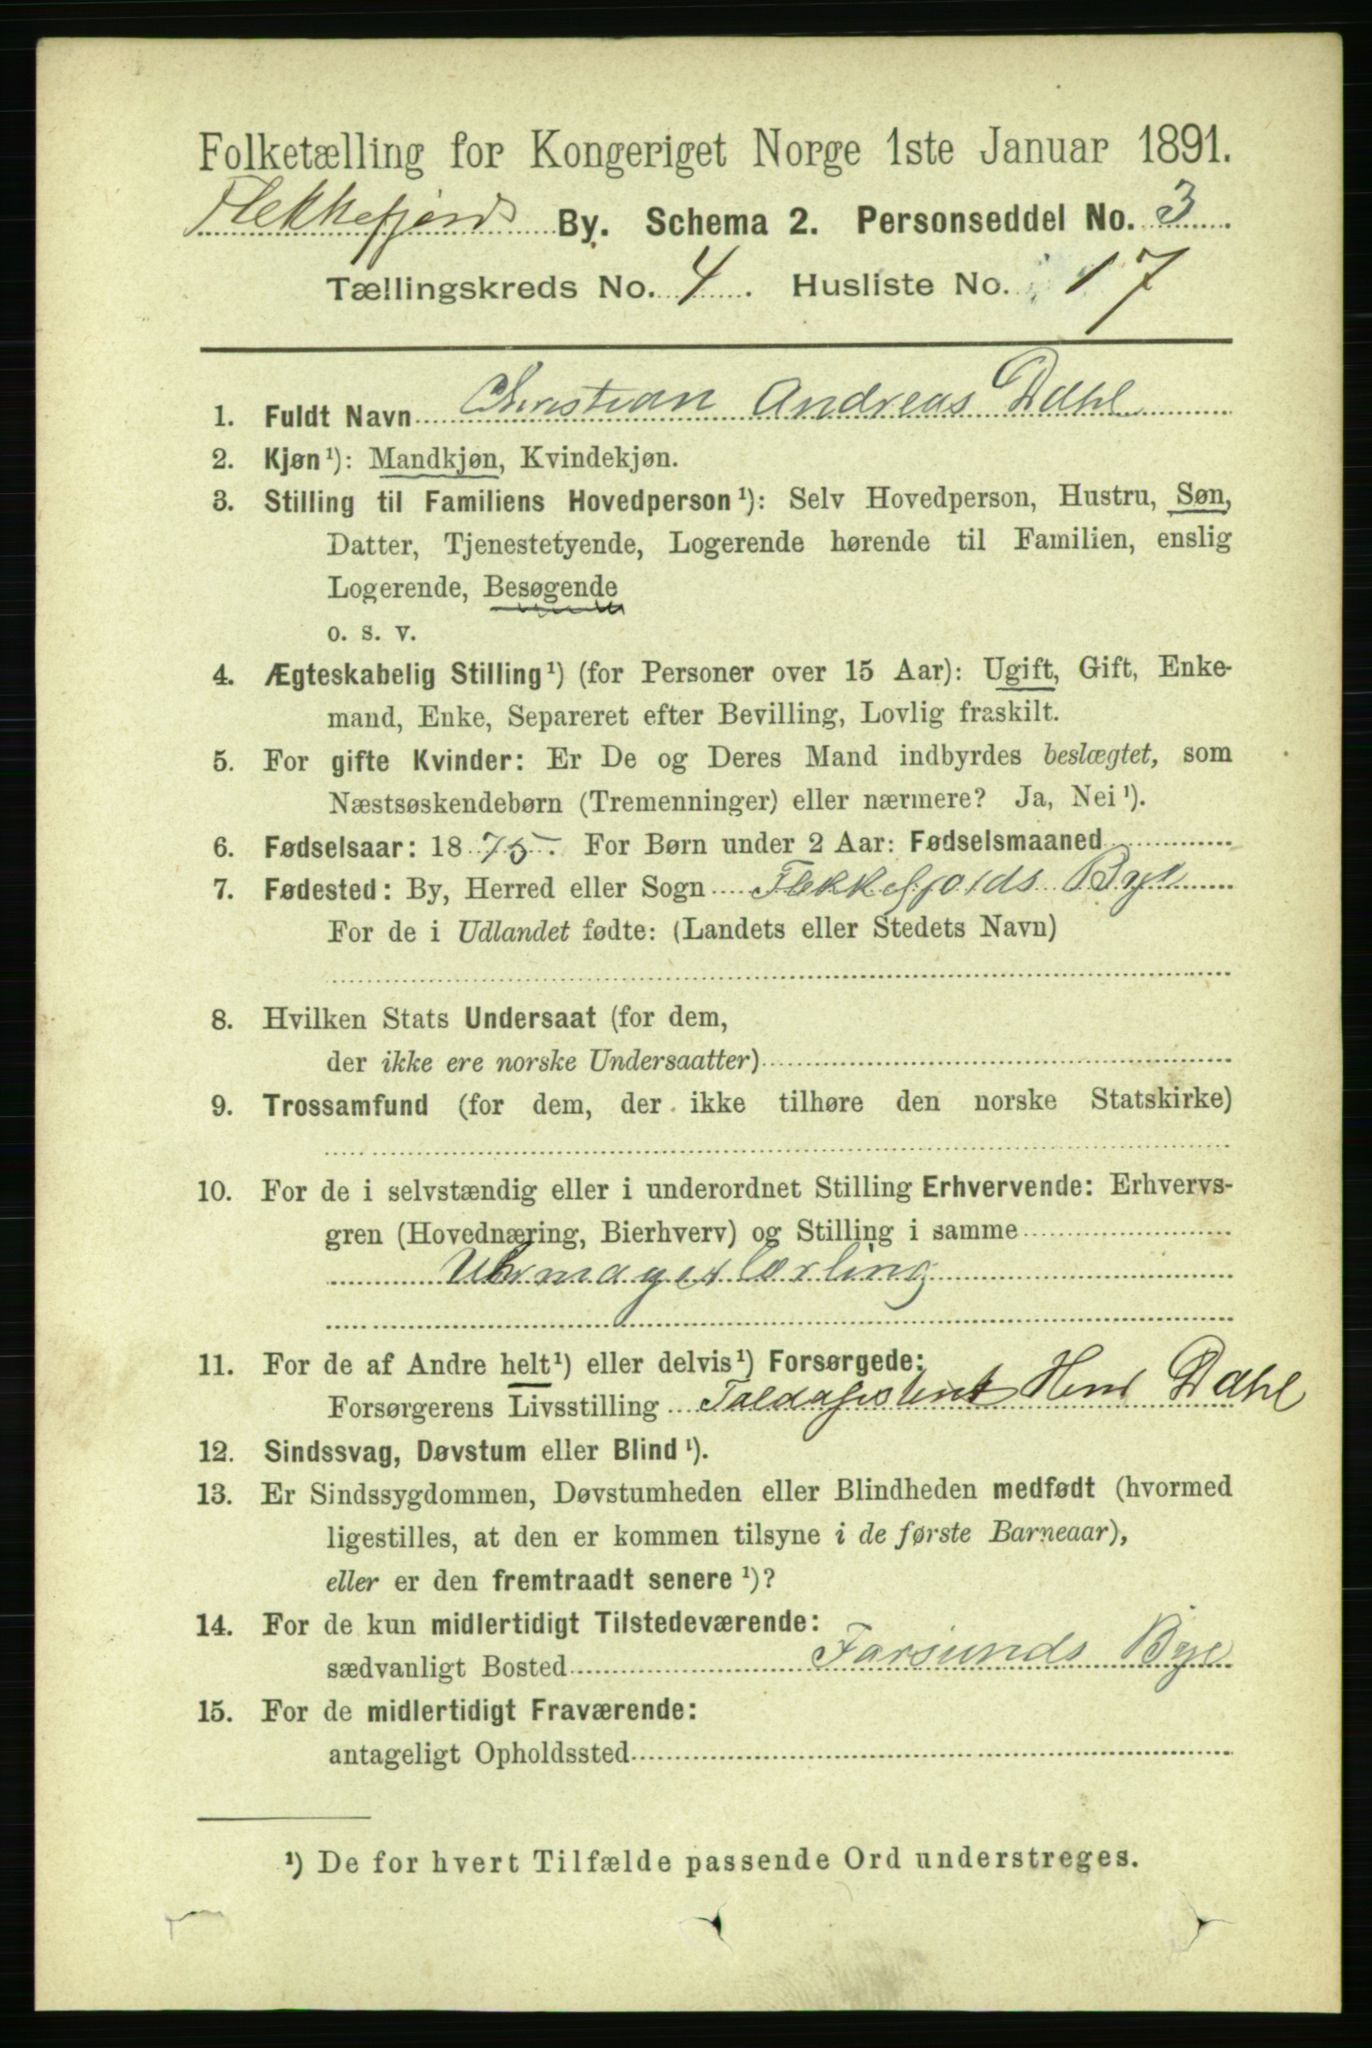 Folketælling for Kongeriget Norge 1ste Januar 1891.
Flekkefjords By. Schema 2. Personseddel No. 3
Tællingskreds No. 4. Husliste No. 17
1. Fuldt Navn Christian Andreas Dahl
2. Kjøn¹): Mandkjøn, Kvindekjøn.
3. Stilling til Familiens Hovedperson¹): Selv Hovedperson, Hustru, Søn,
Datter, Tjenestetyende, Logerende hørende til Familien, enslig
Logerende, Besøgende
o. s. v.
4. Ægteskabelig Stilling¹) (for Personer over 15 Aar): Ugift, Gift, Enke-
mand, Enke, Separeret efter Bevilling, Lovlig fraskilt.
5. For gifte Kvinder: Er De og Deres Mand indbyrdes beslægtet, som
Næstsøskendebørn (Tremenninger) eller nærmere? Ja, Nei¹).
6. Fødselsaar: 1875. For Børn under 2 Aar: Fødselsmaaned
7. Fødested: By, Herred eller Sogn Flekkefjords Bye
For de i Udlandet fødte: (Landets eller Stedets Navn)
8. Hvilken Stats Undersaat (for dem,
der ikke ere norske Undersaatter)
9. Trossamfund (for dem, der ikke tilhøre den norske Statskirke)
10. For de i selvstændig eller i underordnet Stilling Erhvervende: Erhvervs-
gren (Hovednæring, Bierhverv) og Stilling i samme
Uhrmagerlærling
11. For de af Andre helt¹) eller delvis¹) Forsørgede:
Forsørgerens Livsstilling Toldasistent Dahl
12. Sindssvag, Døvstum eller Blind¹).
13. Er Sindssygdommen, Døvstumheden eller Blindheden medfødt (hvormed
ligestilles, at den er kommen tilsyne i de første Barneaar),
eller er den fremtraadt senere¹)?
14. For de kun midlertidigt Tilstedeværende:
sædvanligt Bosted Farsunds Bye
15. For de midlertidigt Fraværende:
antageligt Opholdssted
¹) De for hvert Tilfælde passende Ord understreges.